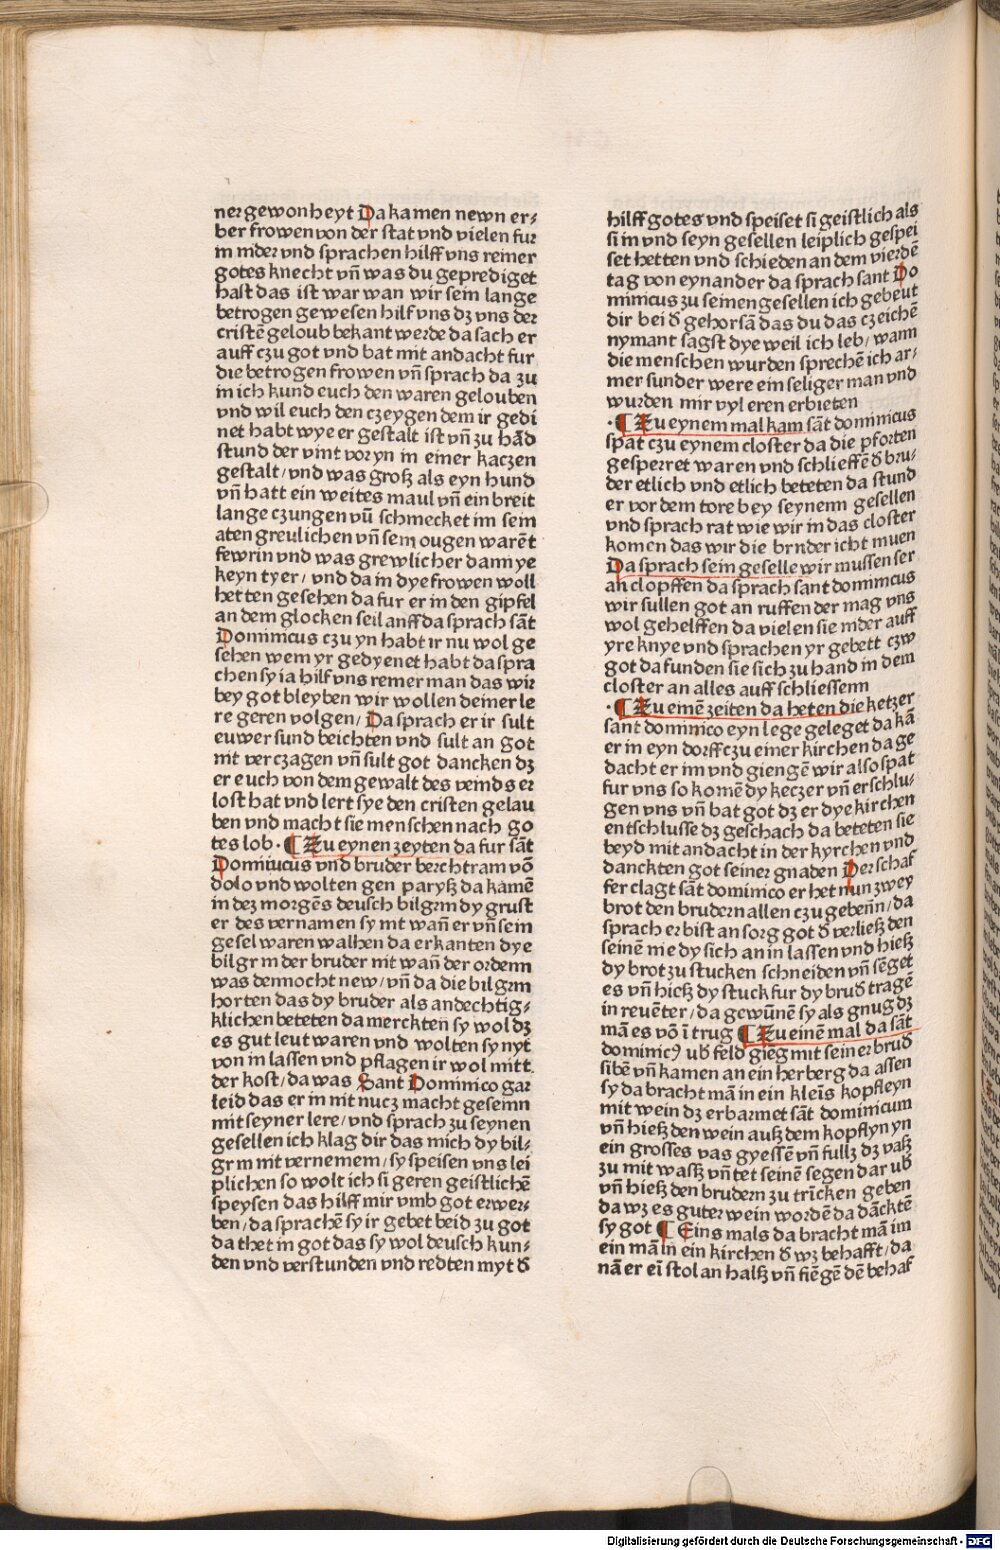 ner gewonheyt Da kamen newn er⸗
ber frowen von der stat vnd vielen fur
in nider vnd sprachen hilff vns reiner
gotes knecht vn̄ was du geprediget
hast das ist war wan wir sein lange
betrogen gewesen hilf vns dz vns der
cristē geloub bekant werde da sach er
auff czu got vnd bat mit andacht fur
die betrogen frowen vn̄ sprach da zu
in ich kund euch den waren gelouben
vnd wil euch den czeygen dem ir gedi
net habt wye er gestalt ist vn̄ zu hād
stund der vint vor yn in einer kaczen
gestalt/ vnd was groß als eyn hund
vn̄ hatt ein weites maul vn̄ ein breit
lange czungen vn̄ schmecket im sein
aten greulichen vn̄ sein ougen warēt
fewrin vnd was grewlicher dann ye
keyn tyer/ vnd da in dye frowen woll
hetten gesehen da fur er in den gipfel
an dem glocken seil auff da sprach sāt
Dominicus czu yn habt ir nu wol ge
sehen wem yr gedyenet habt da spra
chen sy ia hilf vns reiner man das wir
bey got bleyben wir wollen deiner le
re geren volgen/ Da sprach er ir sult
euwer sund beichten vnd sult an got
nit verczagen vn̄ sult got dancken dz
er euch von dem gewalt des veinds er
lost hat vnd lert sye den cristen gelau
ben vnd macht sie menschen nach go
tes lob· ¶ Zu eynen zeyten da fur sāt
Dominucus vnd bruder berchtram vō
dolo vnd wolten gen paryß da kamē
in dez morgēs deusch bilgrin dy grust
er des vernamen sy nit wan̄ er vn̄ sein
gesel waren walhen da erkanten dye
bilgrin der bruder nit wan̄ der ordenn
was dennocht new/ vn̄ da die bilgrin
horten das dy bruder als andechtig⸗
klichen beteten da merckten sy wol dz
es gut leut waren vnd wolten sy nyt
von in lassen vnd pflagen ir wol mitt
der kost/ da was Sant Dominico gar
leid das er in nit nucz macht gesein
mit seyner lere/ vnd sprach zu seynen
gesellen ich klag dir das mich dy bil⸗
grin nit vernemem/ sy speisen vns lei
plichen so wolt ich si geren geistlichē
speysen das hilff mir vmb got erwer⸗
ben/ da sprachē sy ir gebet beid zu got
da thet in got das sy wol deusch kun⸗
den vnd verstunden vnd redten myt ď
hilff gotes vnd speiset si geistlich als
si in vnd seyn gesellen leiplich gespei
set hetten vnd schieden an dem vierdē
tag von eynander da sprach sant Do
minicus zu seinen gesellen ich gebeut
dir bei ď gehorsā das du das czeichē
nymant sagst dye weil ich leb/ wann
die menschen wurden sprechē ich ar⸗
mer sunder were ein seliger man vnd
wurden mir vyl eren erbieten
·¶ Zu eynem mal kam sāt dominicus
spat czu eynem closter da die pforten
gesperret waren vnd schlieffē ď bru⸗
der etlich vnd etlich beteten da stund
er vor dem tore bey seynem gesellen
vnd sprach rat wie wir in das closter
komen das wir die brnder icht muen
Da sprach sein geselle wir mussen ser
an clopffen da sprach sant dominicus
wir sullen got an ruffen der mag vns
wol gehelffen da vielen sie nider auff
yre knye vnd sprachen yr gebett czw
got da funden sie sich zu hand in dem
closter an alles auff schliessenn
·¶ Zu einē zeiten da heten die ketzer
sant dominico eyn lege geleget da kā
er in eyn dorff czu einer kirchen da ge
dacht er im vnd giengē wir also spat
fur vns so komē dy keczer vn̄ erschlu⸗
gen vns vn̄ bat got dz er dye kirchen
entschlusse dz geschach da beteten sie
beyd mit andacht in der kyrchen vnd
danckten got seiner gnaden Der schaf
fer clagt sāt dominico er het nun zwey
brot den brudern allen czu geben̄/ da
sprach er bist an sorg got ď verließ den
seinē nie dy sich an in lassen vnd hieß
dy brot zu stucken schneiden vn̄ sēget
es vn̄ hieß dy stuck fur dy bruď tragē
in reuēter/ da gewūnē sy als gnug dz
mā es vō ī trug ¶ Zu einē mal da sāt
dominicꝰ ub̄ feld gieg mit sein er bruď
sibē vn̄ kamen an ein herberg da assen
sy da bracht mā in ein kleīs kopfleyn
mit wein dz erbarmet sāt dominicum
vn̄ hieß den wein auß dem kopflyn yn
ein grosses vas gyessē vn̄ fullz dz vaß
zu mit wasß vn̄ tet seinē segen dar ub̄
vn̄ hieß den brudern zu trīcken geben
da wz es guter wein wordē da dācktē
sy got ¶ Eins mals da bracht mā im
ein mā in ein kirchen ď wz behafft/ da
nā er eī stol an halß vn̄ fiēgē dē behaf
Digitalisierung gefördert durch die Deutsche Forschungsgemeinschaft · DFG